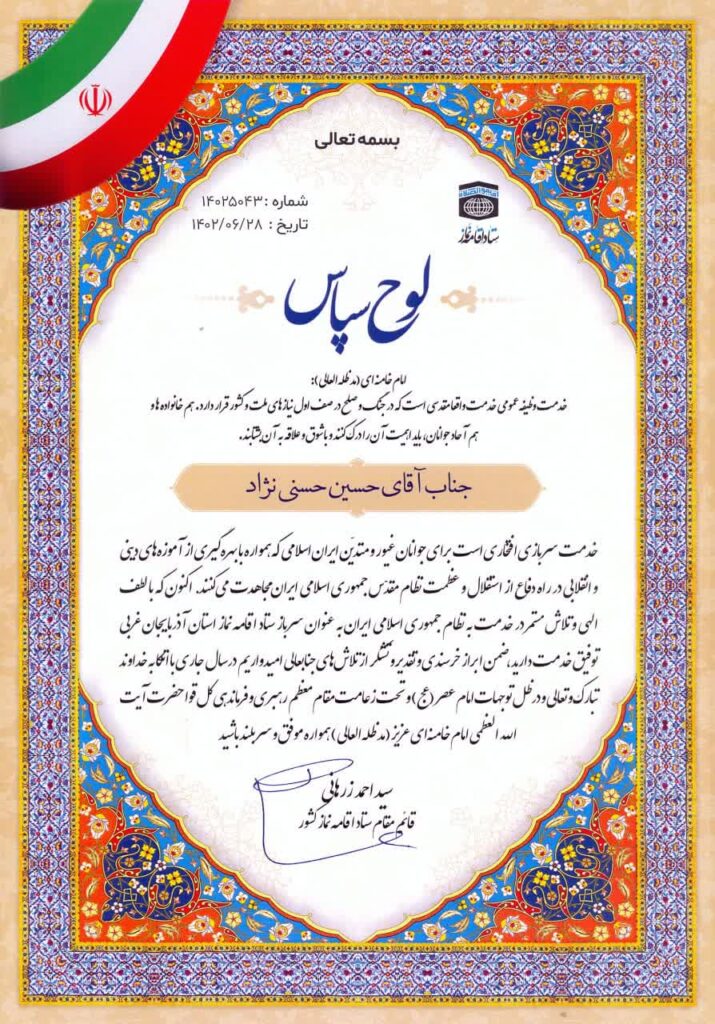 بسمه تعالی
شماره : ۱۴۰۲۵۰۴۳
تاریخ : ۱۴۰۲/۰۶/۲۸
ستاد اقامه نماز
لوح سپاس
امام خامنه ای (مدظله العالی):
خدمت وظیفه عمومی خدمت واقعا مقدسی است که در جنگ و صلح در صف اول نیازهای ملت و کشور قرار دارد. هم خانواده ها و
هم آحاد جوانان، باید اهمیت آن را درک کنند و با شوق و علاقه به آن بشتابند.
جناب آقای حسین حسنی نژاد
خدمت سربازی افتخاری است برای جوانان غیور و متدیّن ایران اسلامی که همواره با بهره گیری از آموزه های دینی
و انقلابی در راه دفاع از استقلال و عظمت نظام مقدّس جمهوری اسلامی ایران مجاهدت می کنند. اکنون که با لطف
الهی و تلاش مستمر در خدمت به نظام جمهوری اسلامی ایران به عنوان سرباز ستاد اقامه نماز استان آذربایجان غربی
توفیق خدمت دارید، ضمن ابراز خرسندی و تقدیر و تشکر از تلاش های جنابعالی امیدواریم در سال جاری با اتکا به خداوند
تبارک و تعالی و در ظل توجهات امام عصر (عج) و تحت زعامت مقام معظم رهبری و فرماندهی کل قوا حضرت آیت
الله العظمی امام خامنه ای عزیز (مدظله العالی) همواره موفق و سربلند باشید
سید احمد زرهانی
قائم مقام ستاد اقامه نماز کشور